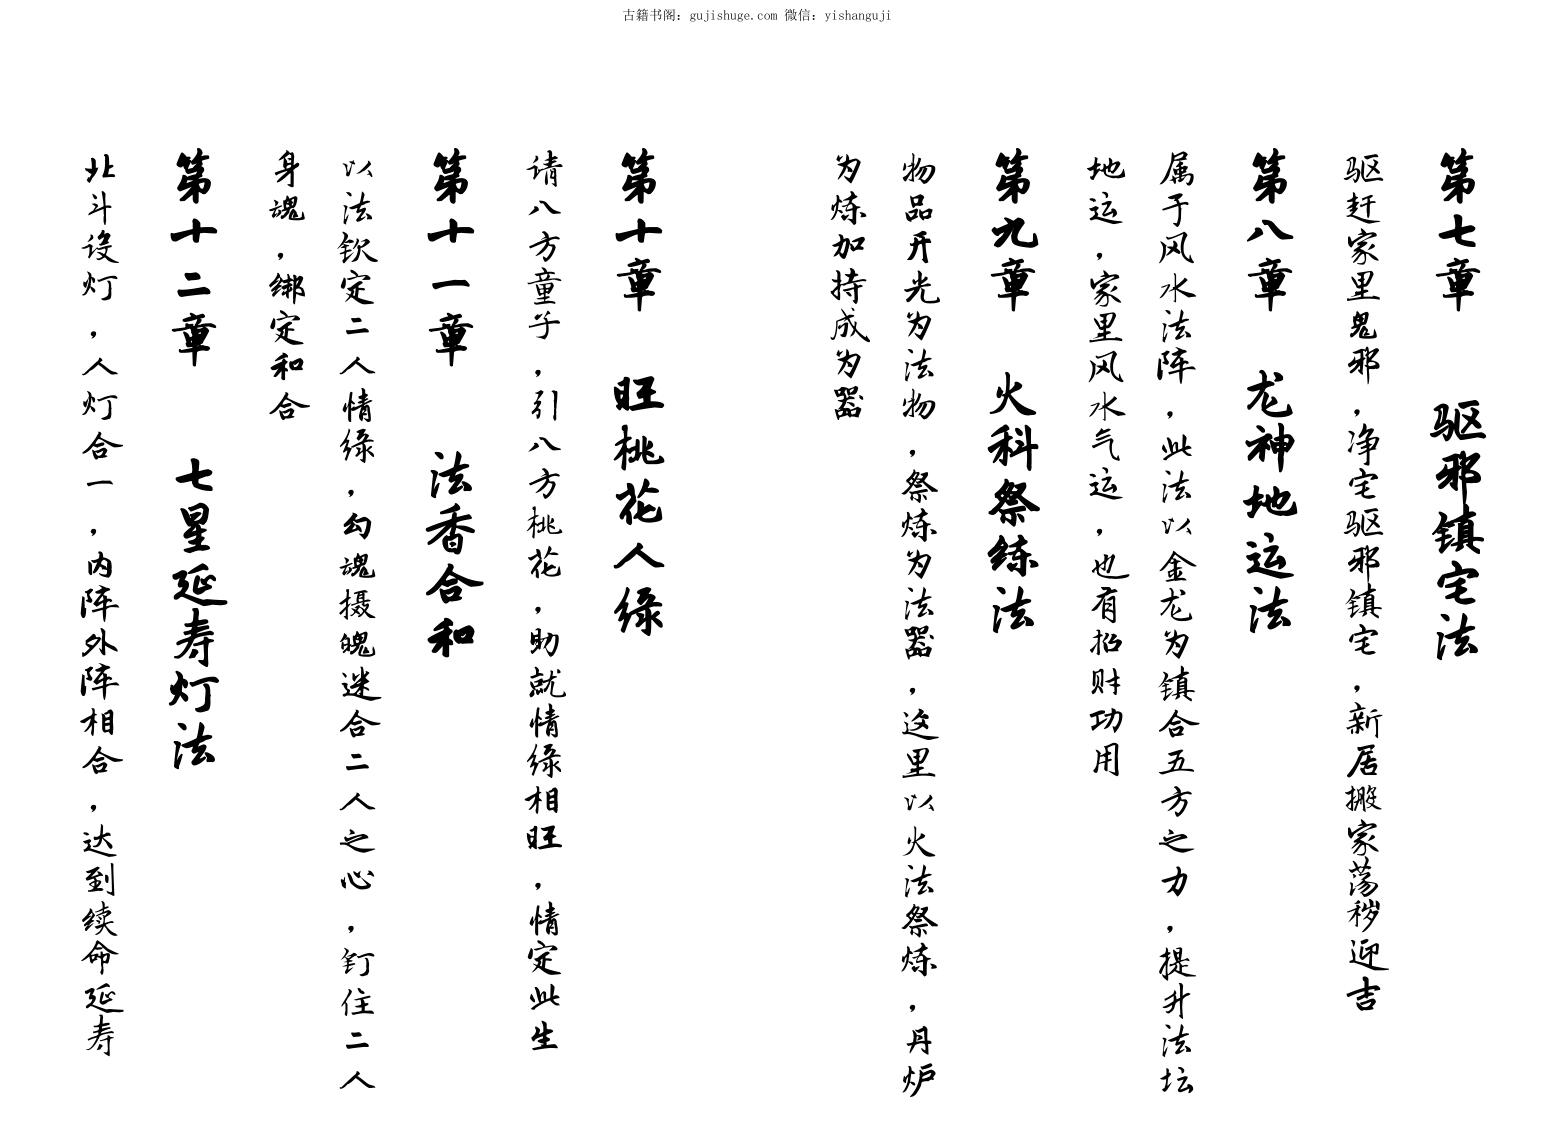 古籍书阁：gujishuge.com 微信：yishanguji
第七章 驱邪镇宅法
驱赶家里鬼邪，净宅驱邪镇宅，新居搬家荡秽迎吉
第八章 龙神地运法
属于风水法阵，此法以金龙为镇合五方之力，提升法坛
地运，家里风水气运，也有招财功用
第九章 火科祭练法
物品开光为法物，祭炼为法器，这里以火法祭炼，丹炉
为炼加持成为器
第十章 旺桃花人缘
请八方童子，引八方桃花，助就情缘相旺，情定此生
第十一章 法香合和
以法钦定二人情缘，勾魂摄魄迷合二人之心，钉住二人
身魂，绑定和合
第十二章 七星延寿灯法
北斗设灯，人灯合一，内阵外阵相合，达到续命延寿